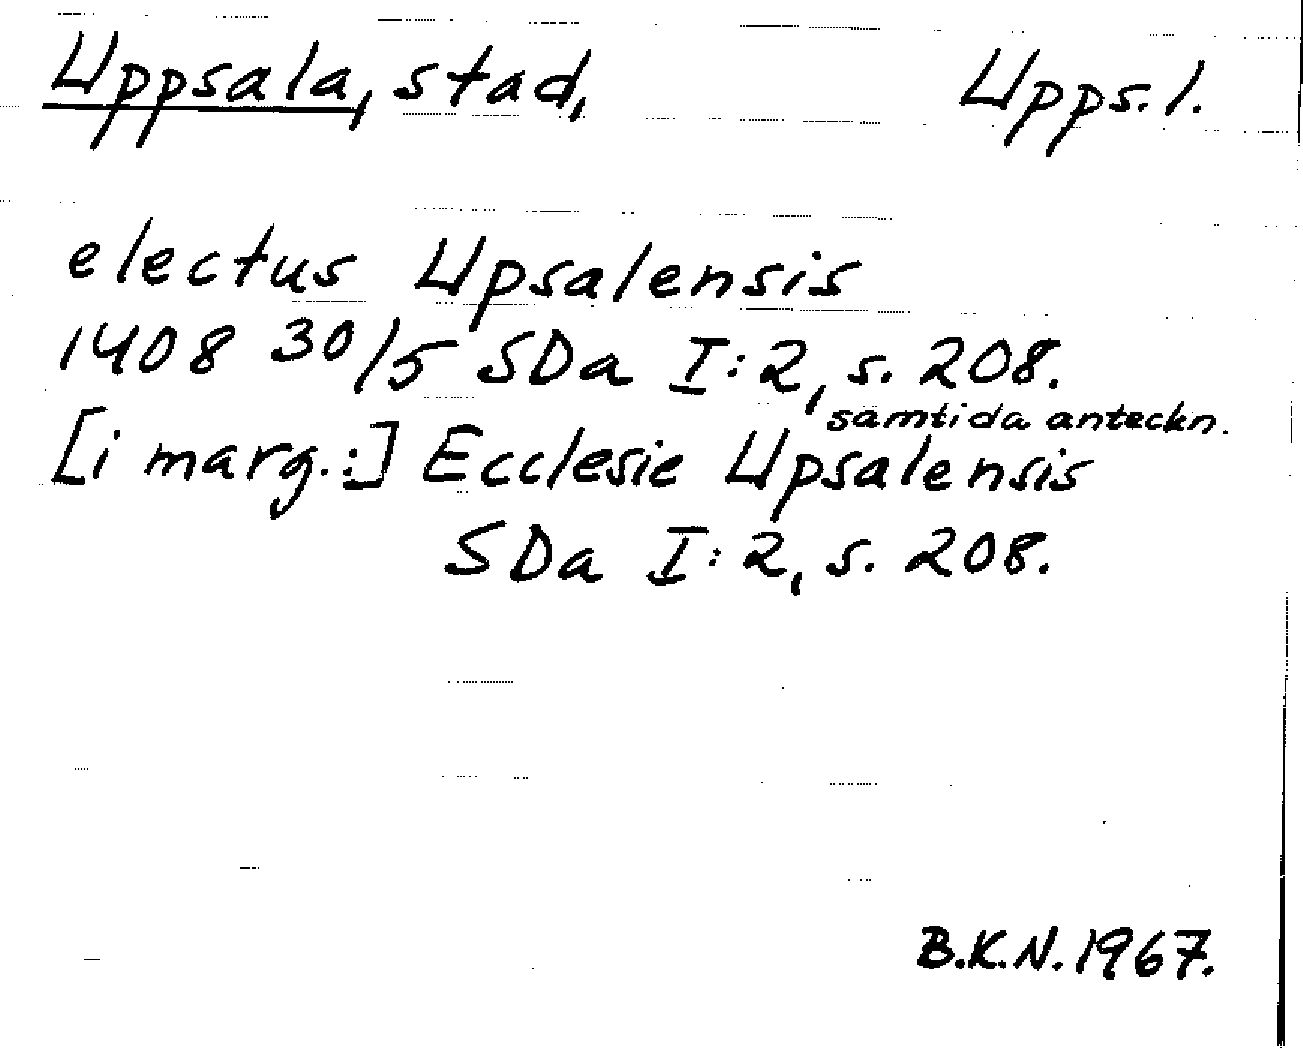 Uppsala, stad, Upps.l.
electus Upsalensis
1408 30/5 SDa I:2, s. 208.
samtida anteckn.
[i marg.:] Ecclesie Upsalensis
SDa I:2, s. 208.
B.K.N. 1967.